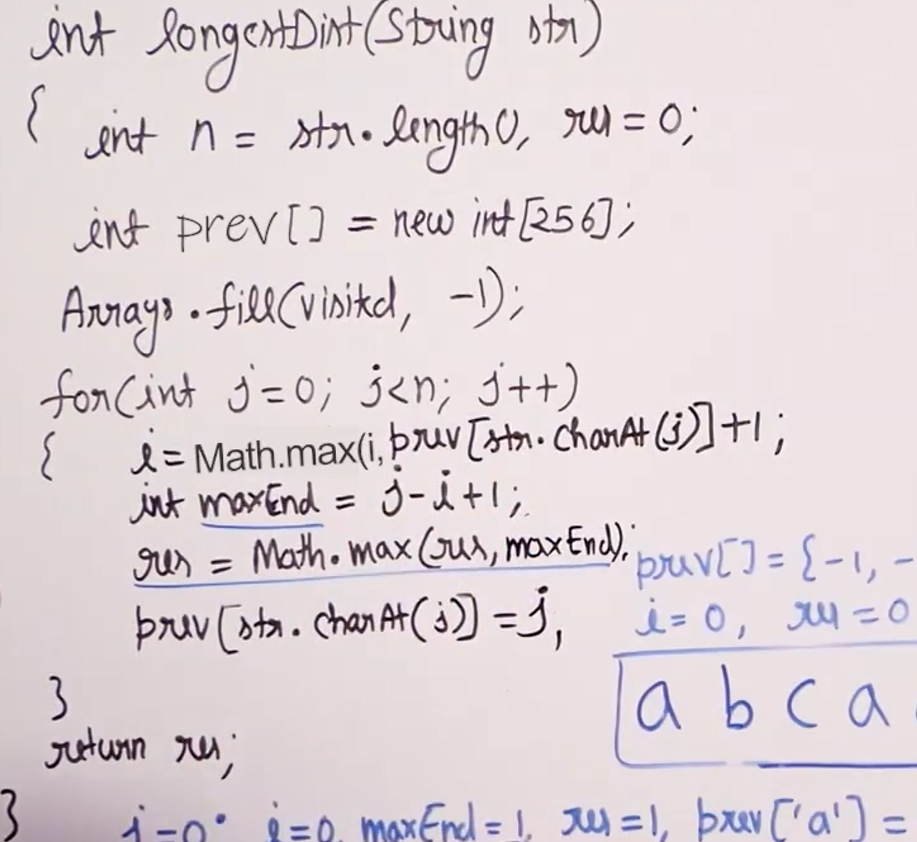 int longestDist(String str)
{ int n = str.length(), res = 0;
int prev[] = new int[256];
Arrays.fill(visited, -1);
for(int j=0; j<n; j++)
{ i = Math.max(i, prev[str.charAt(j)]+1;
int maxEnd = j-i+1;
res = Math.max(res, maxEnd);
prev[str.charAt(j)] = j;
prev[] = {-1, -
i = 0, res = 0
a b c a
}
return res;
}
j=0: i=0, maxEnd = 1, res = 1, prev['a'] =